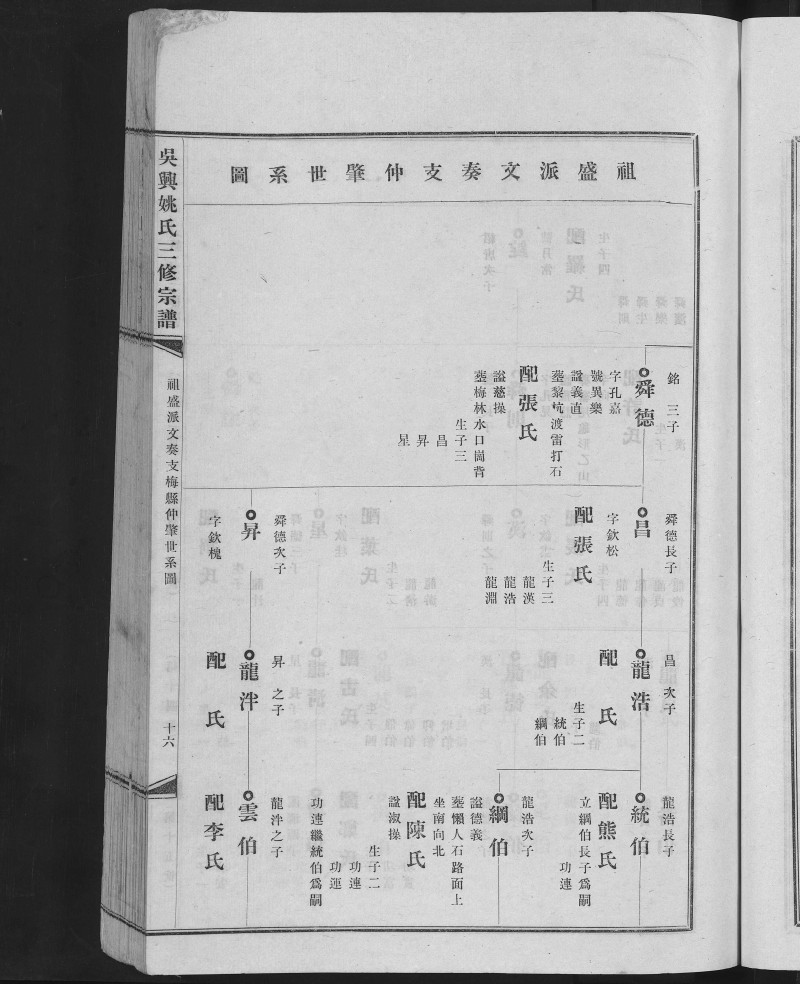 祖盛派文奏支仲肇世系圖
銘 三子
舜德
字孔嘉
號異樂
諡義直
塟黎坑渡雷打石
配張氏
諡慈操
塟梅林水口崗背
生子三
昌
昇
星
舜德長子
昌
字欽松
配張氏
生子三
龍漢
龍浩
龍淵
舜德次子
昇
字欽槐
昌 次子
龍浩
配 氏
生子二
統伯
綱伯
昇 之子
龍泮
配 氏
龍浩長子
統伯
配熊氏
立綱伯長子爲嗣
功連
龍浩次子
綱伯
諡德義
塟懶人石路面上
坐南向北
配陳氏
諡淑操
生子二
功連
功運
功連繼統伯爲嗣
龍泮之子
雲伯
配李氏
吳興姚氏三修宗譜
祖盛派文奏支梅縣仲肇世系圖
十六